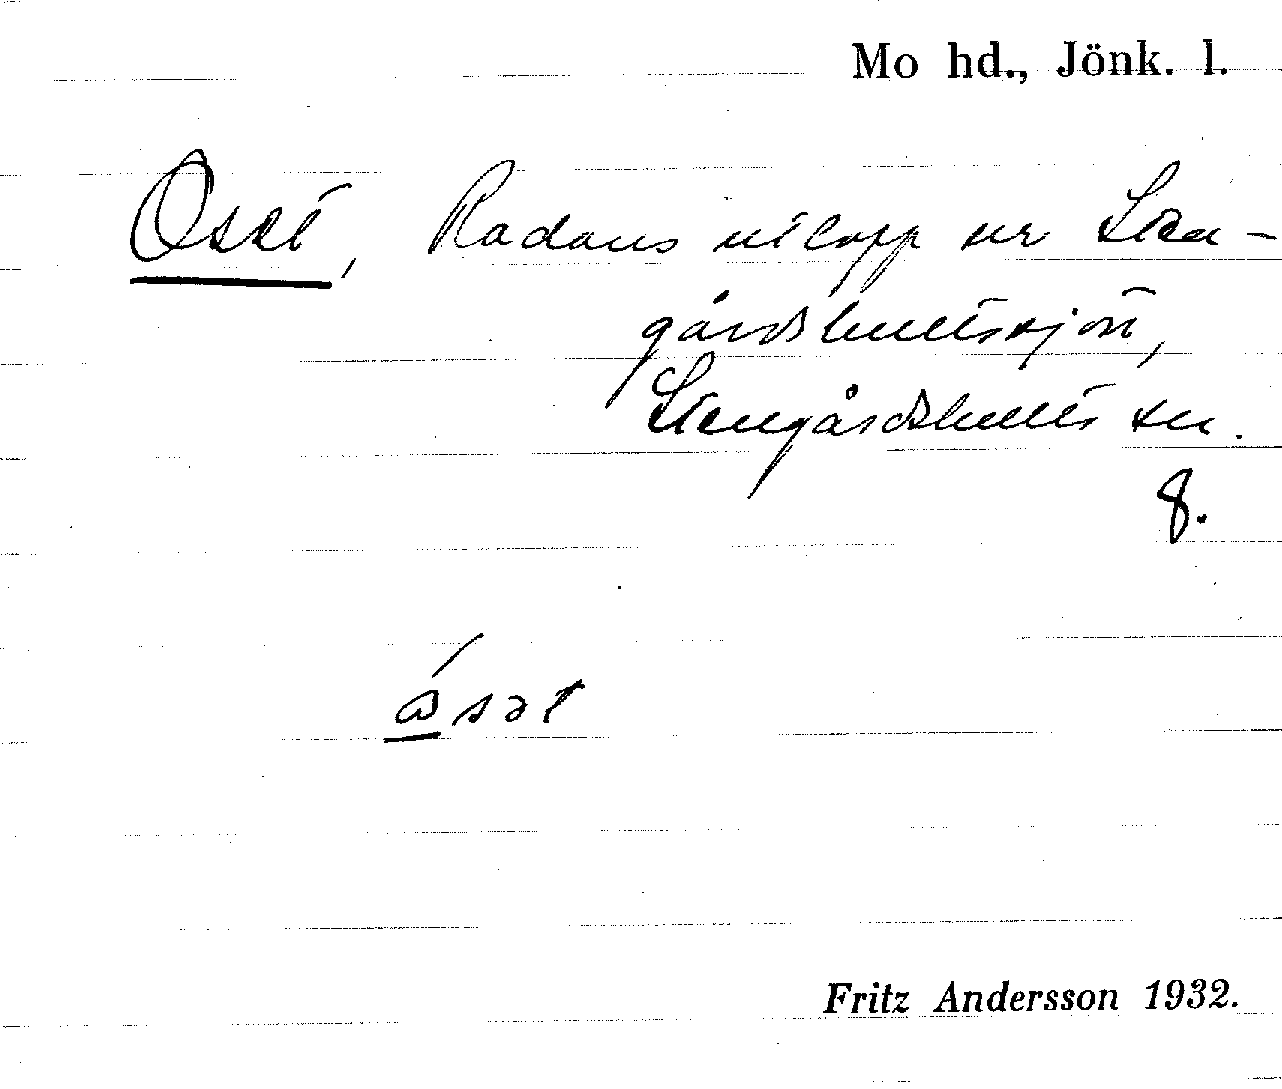 Mo hd., Jönk. l.
Oset, Radans utlopp ur Sten-
gårdshultssjön,
Stengårdshults sn.
8.
ɷ́sət
Fritz Andersson 1932.